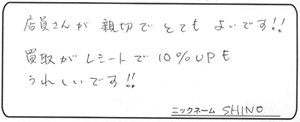 店員さんが親切でとてもよいです!!
買取がレシートで10%UPも
うれしいです!!
ニックネーム SHINO